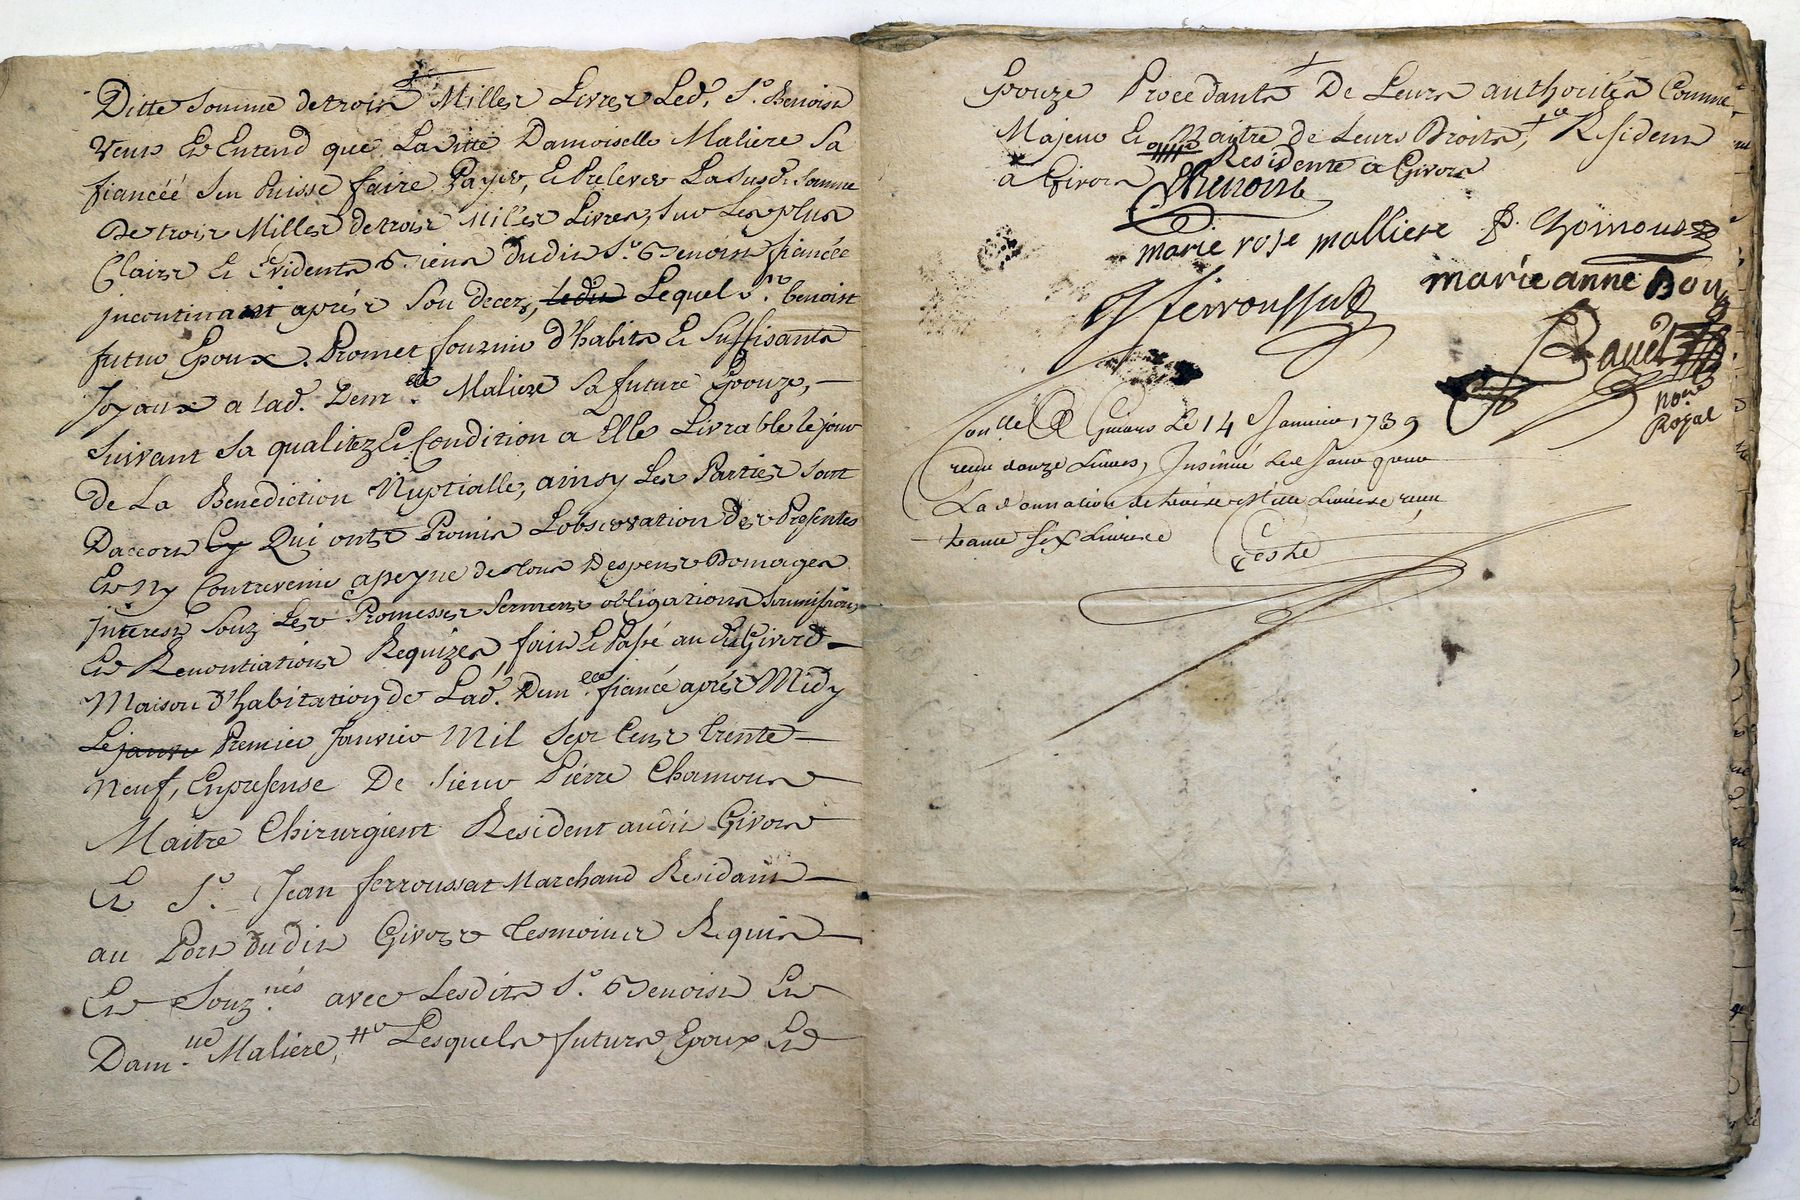 Ditte Somme detrois Milles Livres Led. Sr. Benoist
Veut Et Entend que Laditte Damoiselle Maliere Sa
fiancéé Sen Puisse faire Payer, Et Prelever La Susd. Somme
De trois Milles detrois Milles Livres, Sur Les plus
Clairs Et Evidents Biens dudit Sr. Benoist fiancée
incontinant aprés Son decez, ledit Lequel Sr. benoist
futur Epoux. Promet fournir d'habits Et Suffisants
Joyaux a lad. Dem.elle Maliere Sa future Epouze,
Suivant Sa qualitez Et Condition a Elle Livrable le jour
de La Benediction Nuptialle, ainsy Les Parties Sont
Daccors Ey Qui onts Promis Lobservation des Presentes
Et Ny Contrevenir apeyne detous Despens Domages
jnterests Souz Les Promesses Serments obligations Soumissions
Et Renontiations Requizes, fait Et Passé audit Givors
Maison d'habitation de Lad. Dem.elle fiancé aprés Midy
Le janvr Premier Janvier Mil Sept Cent trente
Neuf, Enpresense De Sieur Pierre Chamous
Maitre Chirurgient Resident audit Givors
Et Sr. Jean ferroussat Marchand Residant
au Port dudit Givors tesmoins Requis
Et Souz.nés avec Lesdits Sr. Benoist Et
Dam.lle Maliere, Lesquels futurs Epoux Et
Epouze Procedants De Leurs authorités Comme
Majeur Et Maitre de Leurs Droits, Resident
a Givors Residente a Givors
Benoist
marie rose malliere P. Chomous
marie anne Bou
Jferroussat
Bauet
nore
Royal
Con.llé a Givors Le 14 Janvier 1739
reçeu douze Livres, Insinué Led Jour
La donnation de troise Mille Livrese reçeu
trante Six Livrese
Teste